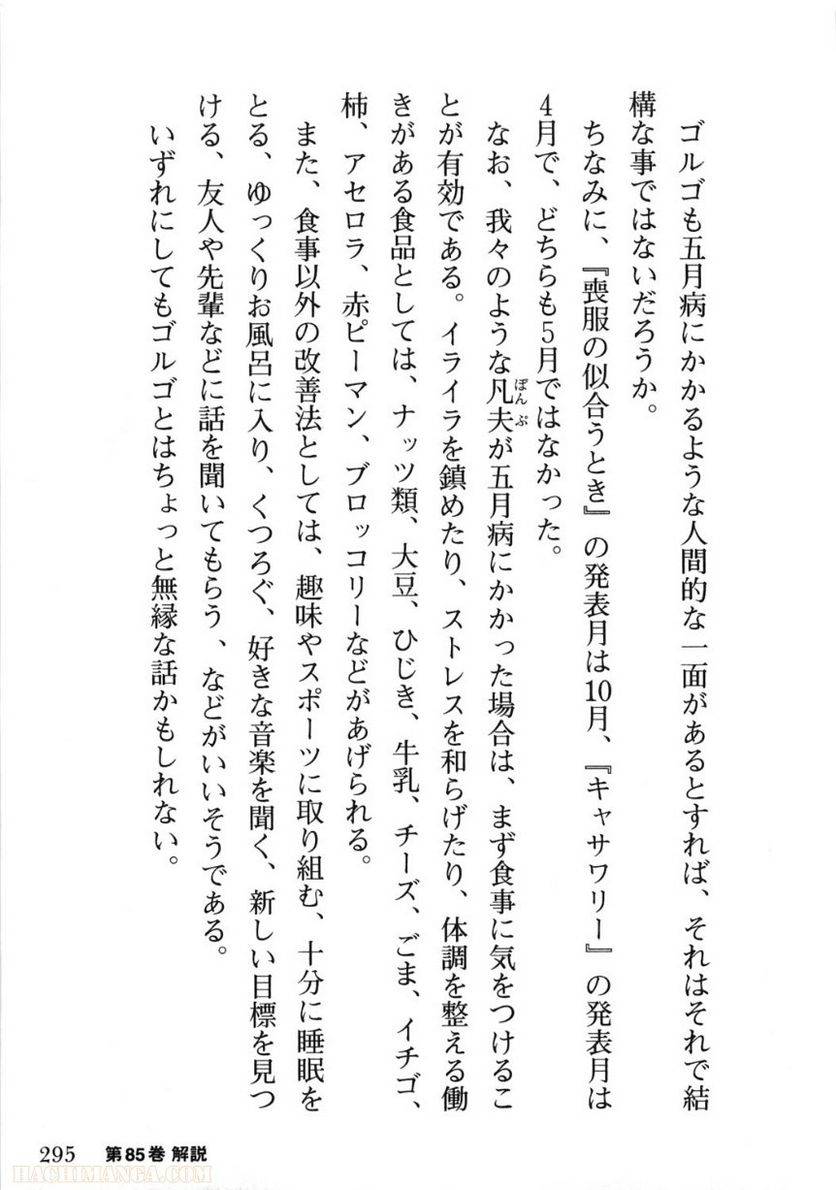 ゴルゴも五月病にかかるような人間的な一面があるとすれば、それはそれで結
構な事ではないだろうか。
ちなみに、『喪服の似合うとき』の発表月は10月、『キャサワリー』の発表月は
4月で、どちらも5月ではなかった。
なお、我々のような凡夫が五月病にかかった場合は、まず食事に気をつけるこ
ぼんぷ
とが有効である。イライラを鎮めたり、ストレスを和らげたり、体調を整える働
きがある食品としては、ナッツ類、大豆、ひじき、牛乳、チーズ、ごま、イチゴ、
柿、アセロラ、赤ピーマン、ブロッコリーなどがあげられる。
また、食事以外の改善法としては、趣味やスポーツに取り組む、十分に睡眠を
とる、ゆっくりお風呂に入り、くつろぐ、好きな音楽を聞く、新しい目標を見つ
ける、友人や先輩などに話を聞いてもらう、などがいいそうである。
いずれにしてもゴルゴとはちょっと無縁な話かもしれない。
295 第85巻 解説
HACHIMANGA.COM